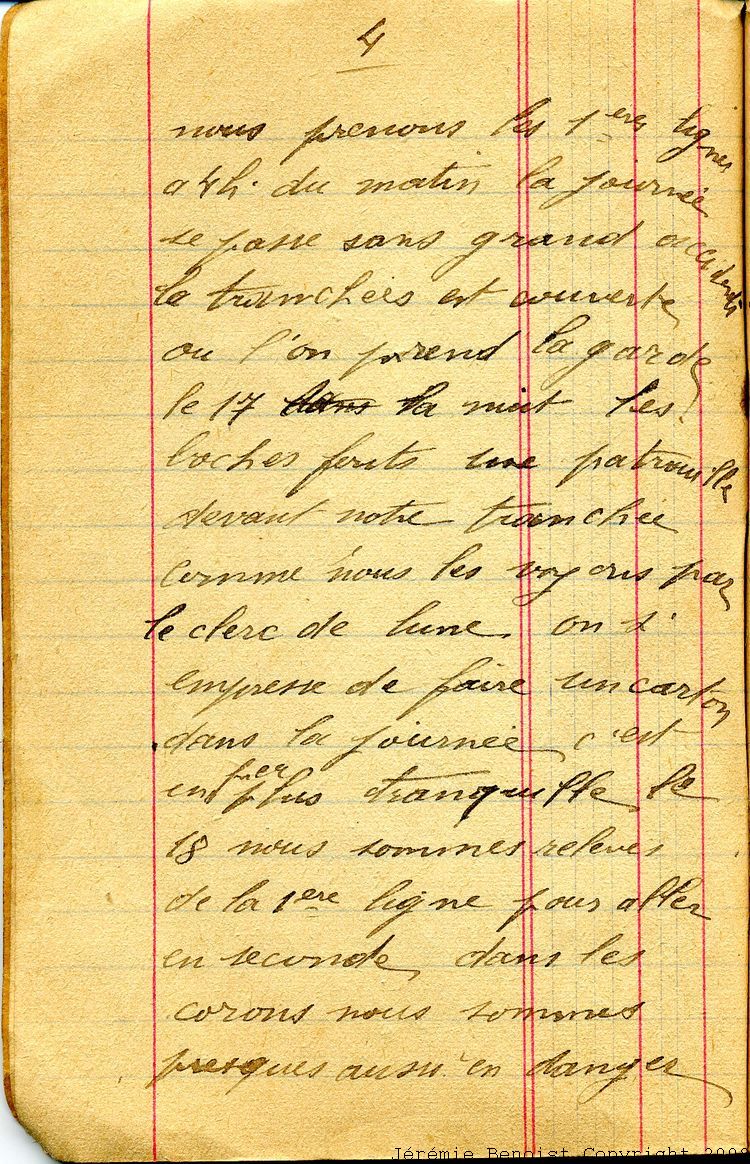 4
nous prenons les 1ères lignes
a 4h. du matin la journée
se passe sans grand accidents
la tranchées est couverte
ou l'on prend la garde
le 17 dans la nuit les
boches fonts une patrouille
devant notre tranchée
comme nous les voyons par
le clerc de lune on s'
empresse de faire un carton
dans la journée c'est
un peu plus tranquille le
18 nous sommes relevés
de la 1ère ligne pour aller
en seconde dans les
corons nous sommes
presques aussi en danger
Jérémie Benoist Copyright